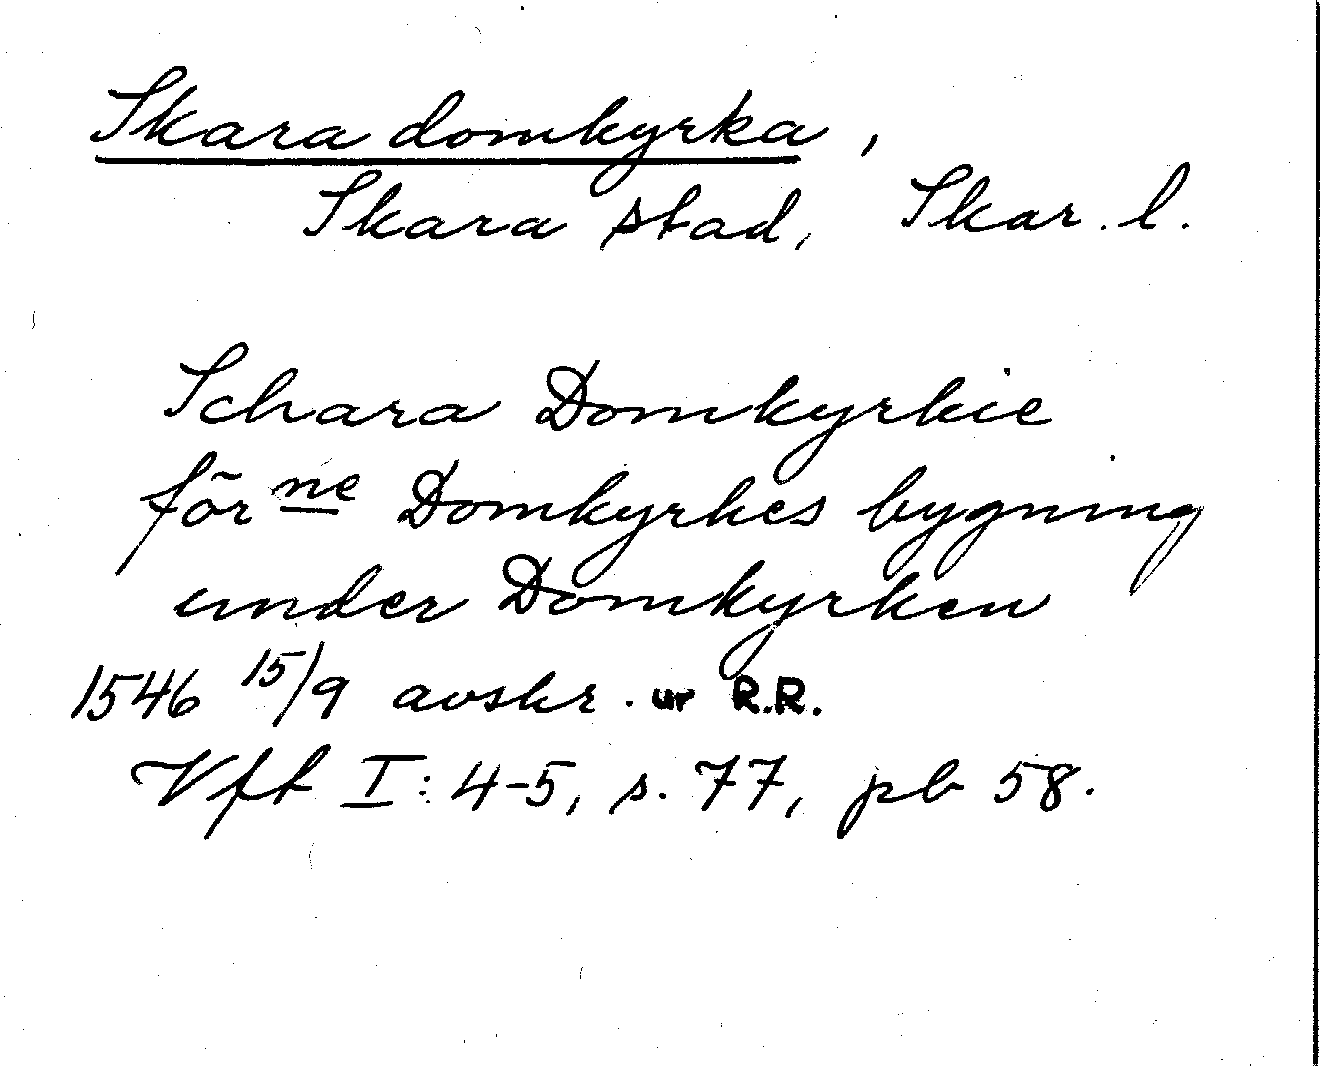 Skara domkyrka,
Skara stad, Skar. l.
Schara Domkyrkie
förne Domkyrkes bygning
under Domkyrken
1546 15/9 avskr. ur R.R.
Vft I: 4-5, s. 77, pb 58.